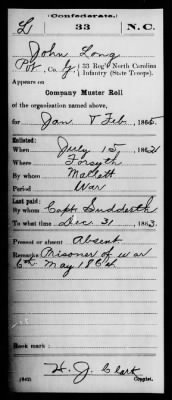 (Confederate.)
L 33 N.C.
John Long
Pvt, Co. G, 33 Reg't North Carolina
Infantry (State Troops).
Appears on
Company Muster Roll
of the organization named above,
for Jan & Feb, 1865.
Enlisted:
When July 15, 1862.
Where Forsyth
By whom Mallett
Period War
Last paid:
By whom Capt Sudderth
To what time Dec. 31, 1863.
Present or absent Absent
Remarks: Prisoner of war
6th May 1864.
Book mark:
H. J. Clark
(642) Copyist.